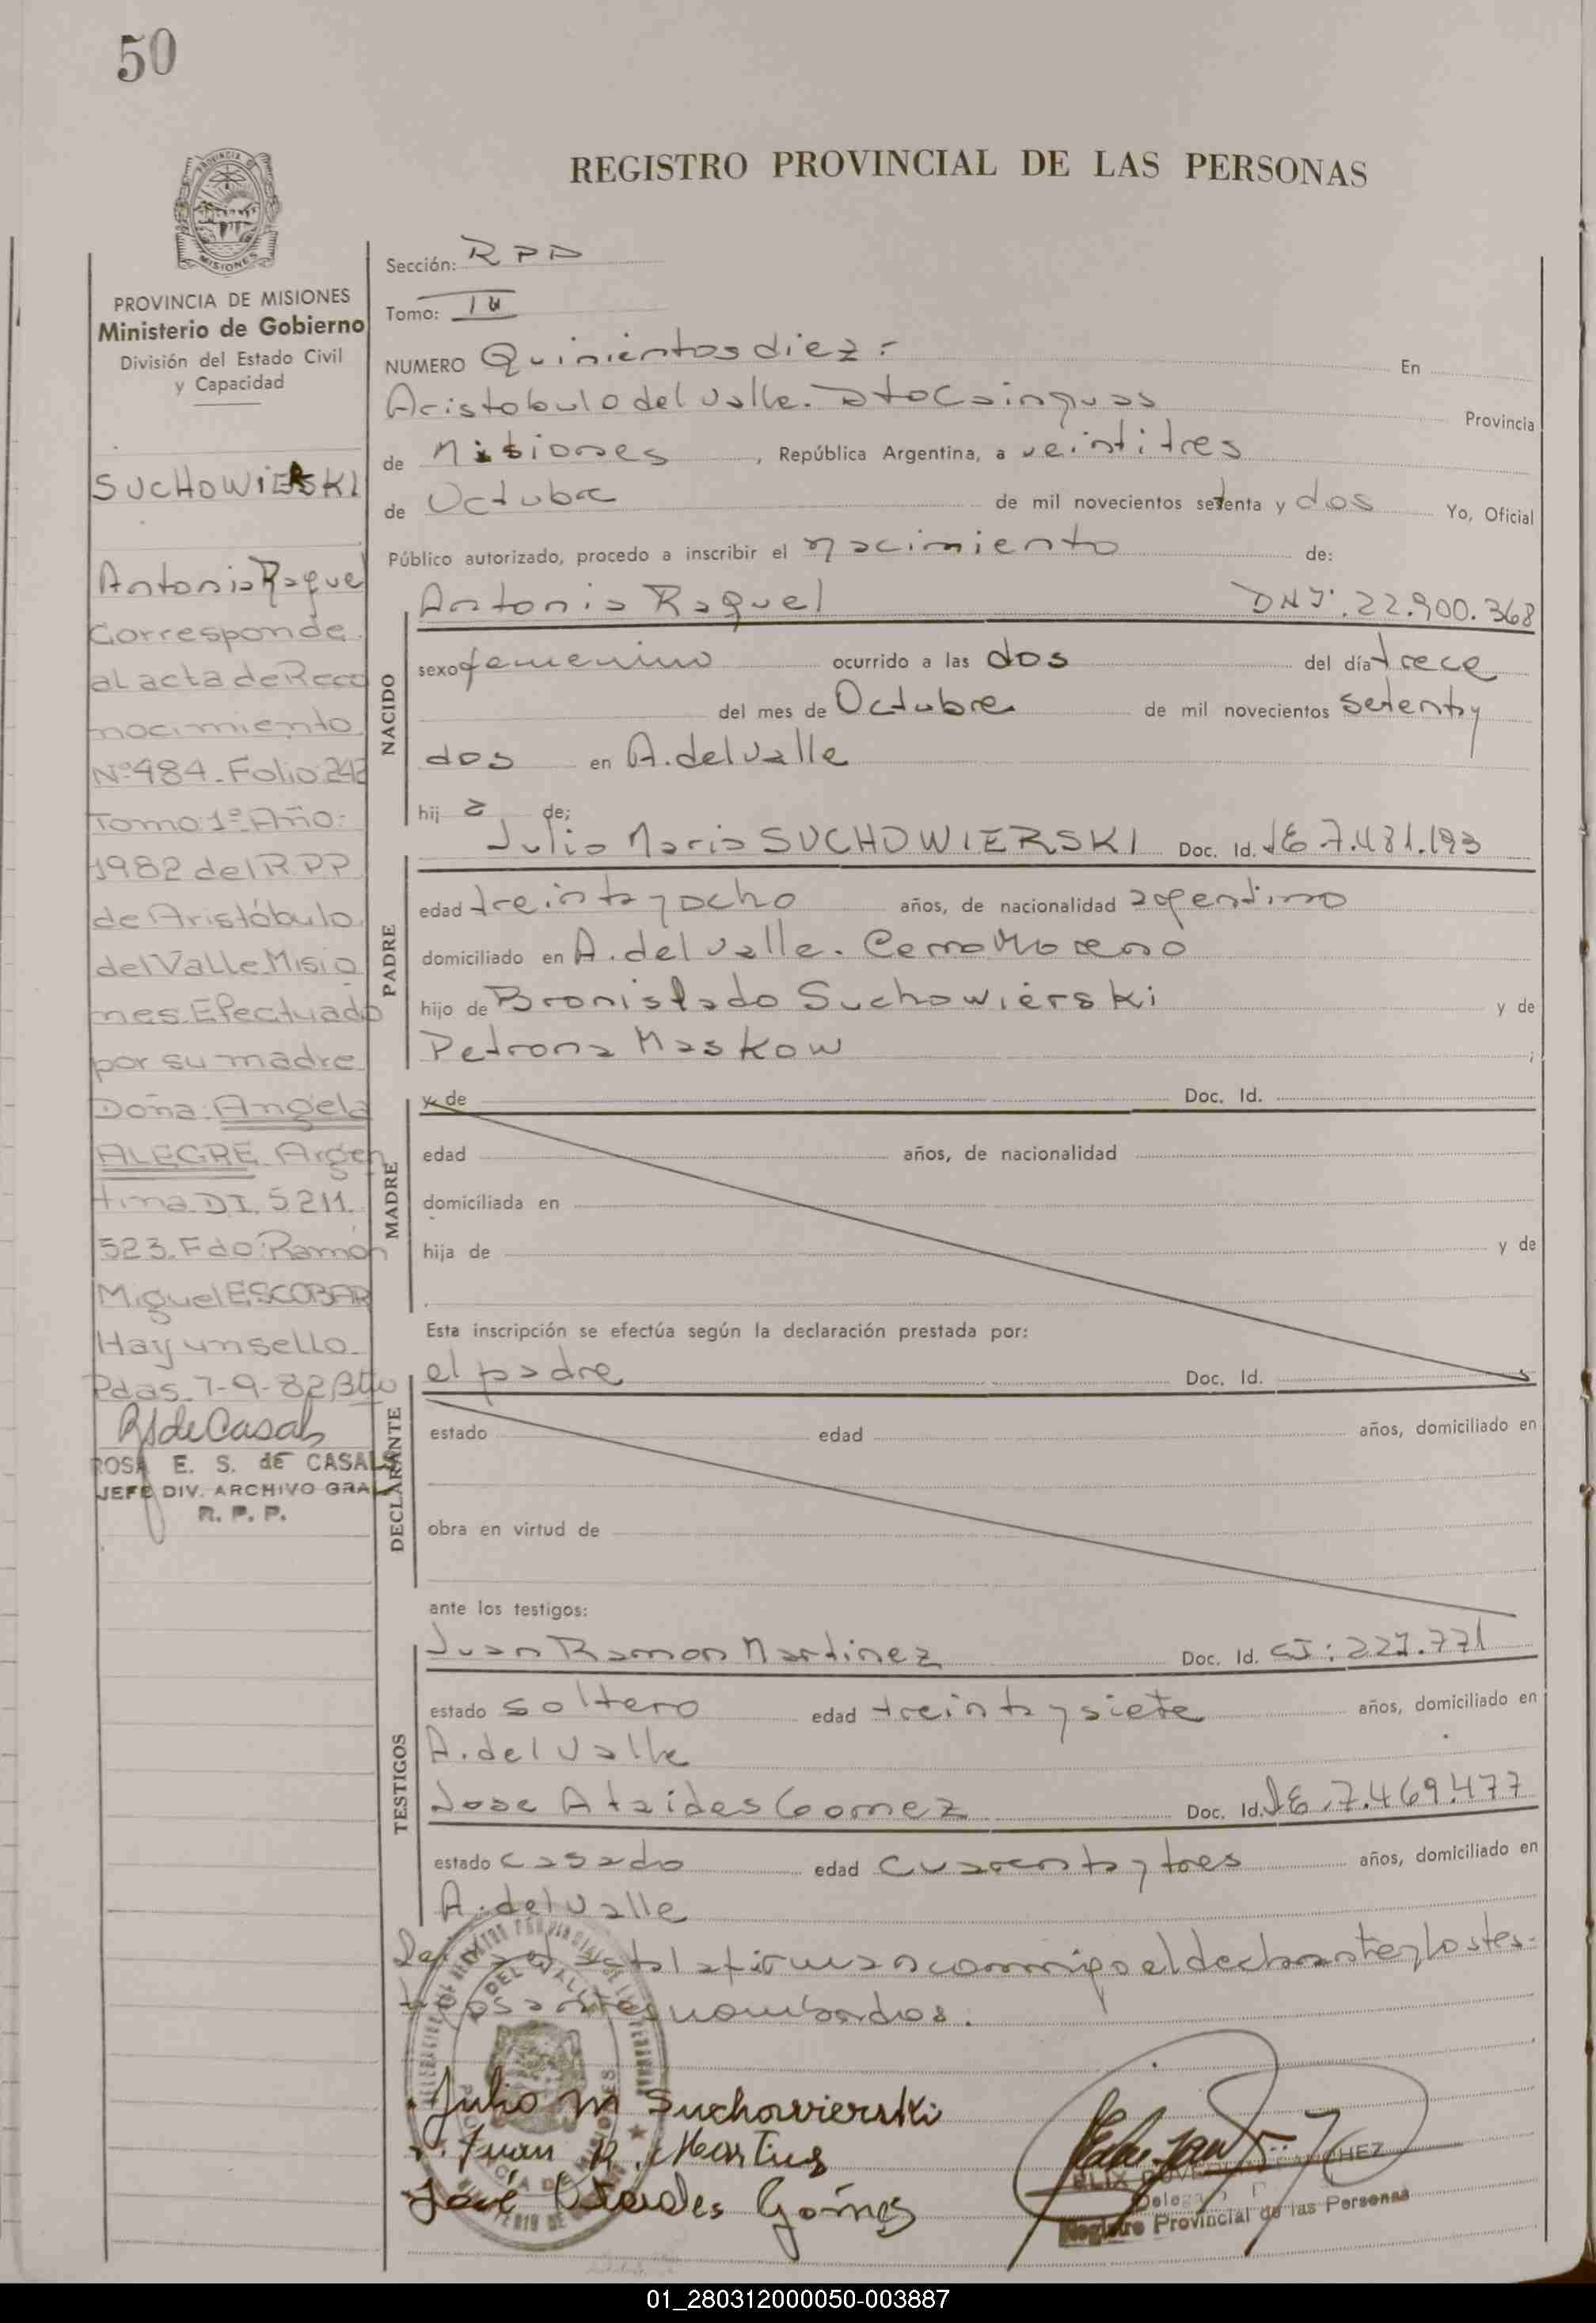 50
REGISTRO PROVINCIAL DE LAS PERSONAS
PROVINCIA DE MISIONES
Ministerio de Gobierno
División del Estado Civil
y Capacidad
SUCHOWIERSKI
Antonia Raquel
Corresponde
al acta de Reco
nocimiento
Nº 484. Folio 242
Tomo 1º Año:
1982 del R.P.P
de Aristóbulo
del Valle Misio
nes Efectuado
por su madre
Doña: Angela
ALEGRE Argen
tina DI. 5211.
523. Fdo: Ramón
Miguel ESCOBAR
Hay un sello
Pdas. 7-9-82
RSdeCasals
ROSA E. S. de CASALS
JEFE DIV. ARCHIVO GRAL
R. P. P.
Sección: RPD
Tomo:
NUMERO Quinientos diez:-
En
Aristobulo del Valle. Dto Cainguas Provincia
de Misiones, República Argentina, a veintitres
de Octubre de mil novecientos setenta y dos Yo, Oficial
Público autorizado, procedo a inscribir el nacimiento de:
NACIDO
Antonia Raquel DNI. 22.900.368
sexo femenino ocurrido a las dos del día trece
del mes de Octubre de mil novecientos setenta y
dos en A. del Valle
hij a de;
PADRE
Julio Mario SUCHOWIERSKI Doc. Id. LE 7.481.193
edad treinta y ocho años, de nacionalidad argentino
domiciliado en A. del Valle. Cerro Moreno
hijo de Bronislado Suchowierski y de
Petrona Maskow ;
MADRE
y de Doc. Id.
edad años, de nacionalidad
domiciliada en
hija de y de
Esta inscripción se efectúa según la declaración prestada por:
DECLARANTE
el padre Doc. Id.
estado edad años, domiciliado en
obra en virtud de
ante los testigos:
TESTIGOS
Juan Ramon Martinez Doc. Id. CI: 227.771
estado soltero edad treinta y siete años, domiciliado en
A. del Valle
Jose Ataides Gomez Doc. Id. LE. 7.469.477
estado casado edad cuarenta y tres años, domiciliado en
A. del Valle
acta la firman conmigo el declarante y los tes-
tigos antes nombrados.
Julio M Suchowierski
Juan R. Martinez
José Ataides Gómez
Registro Provincial de las Personas
01_280312000050-003887